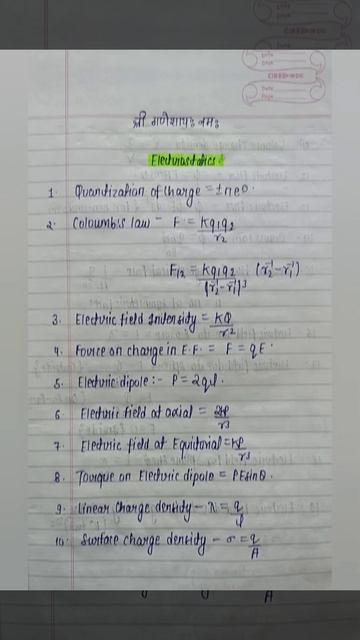 श्री गणेशाय नमः
Electrostatics
1. Quantization of charge = ±ne.
2. Coloumb's law - F = Kq1q2/r2
F12 = Kq1q2/|r⃗2-r⃗1|3 (r⃗2-r⃗1)
3. Electric field Intensity = KQ/r2
4. Force on charge in E.F. = F = qE.
5. Electric dipole :- P = 2ql.
6. Electric field at axial = 2KP/r3
7. Electric field at Equitorial = KP/r3
8. Torque on Electric dipole = PEsinθ.
9. Linear charge density - λ = q/l
10. Surface charge density - σ = q/A